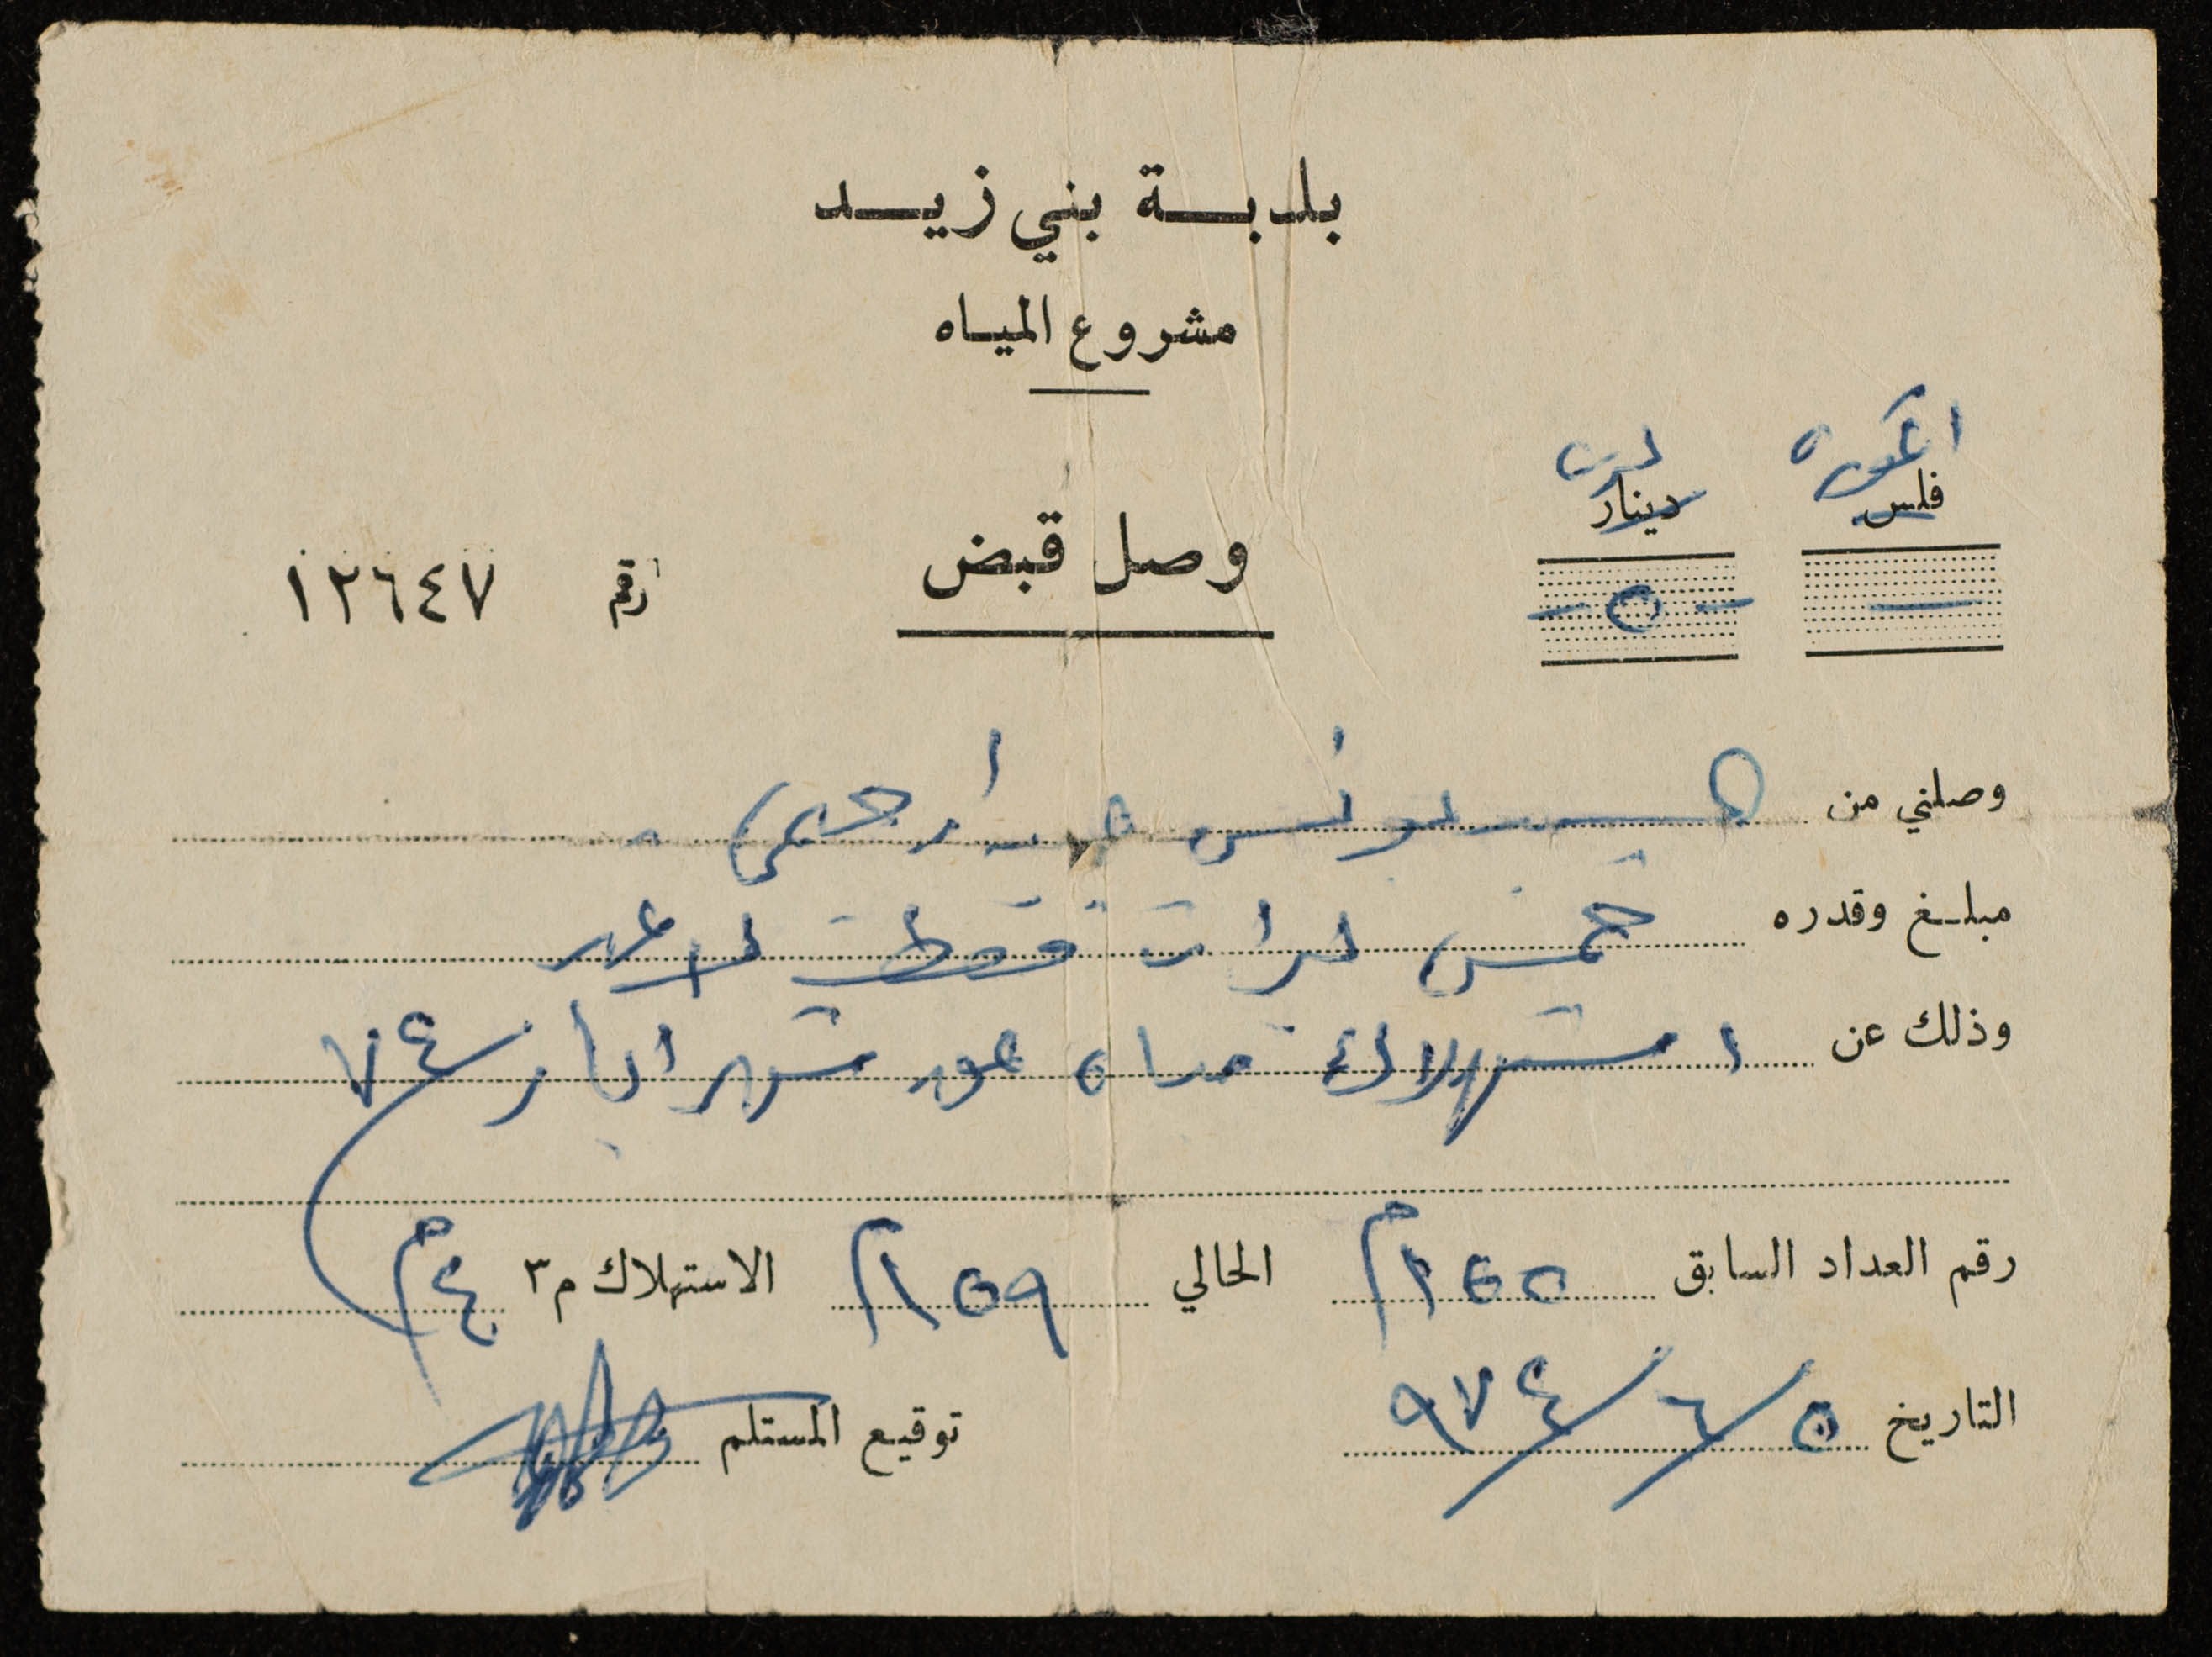 بلدية بني زيد
مشروع المياه
فلس دينار
ليرة
- ٥ -
وصل قبض
رقم ١٢٦٤٧
وصلني من السيد يونس
مبلغ وقدره خمس ليرات فقط لا غير
وذلك عن استهلاك مياه عن شهر ايار ٧٤
رقم العداد السابق ١٥٥م الحالي ١٥٩م الاستهلاك م٣ ٤م
التاريخ ٥/٦/٩٧٤
توقيع المستلم